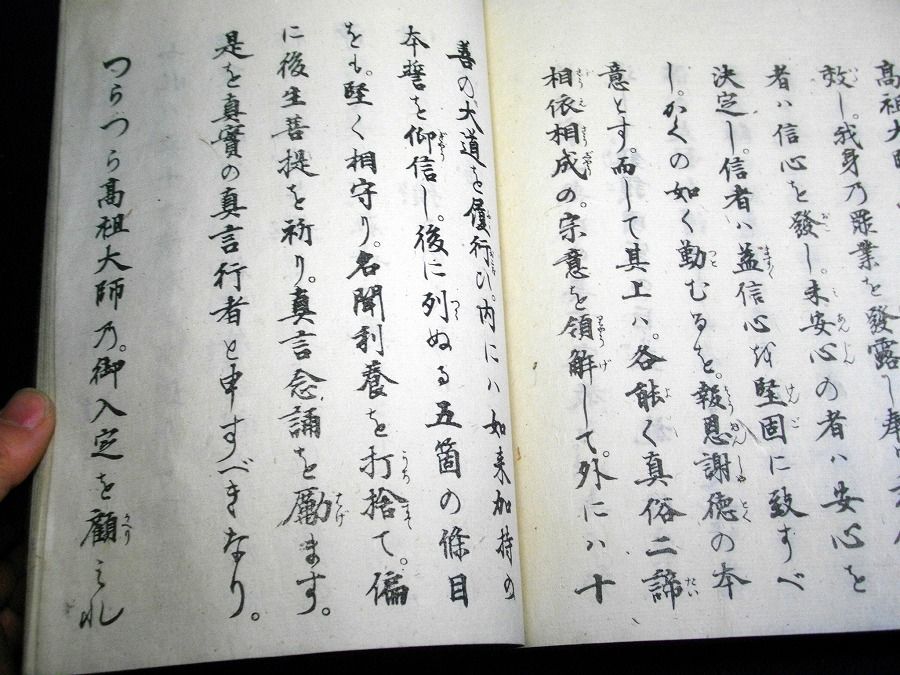 高祖大師
效し。我身乃罪業を發露し奉
者ハ信心を發し。未安心の者ハ安心を
決定し。信者ハ益信心を堅固に致すべ
し。かくの如く勤むるを。報恩謝德の本
意とす。而して其上ハ。各能く真俗二諦
相依相成の。宗意を領解して。外にハ十
善の大道を履行ひ。内にハ如来加持の
本誓を御信し。後に列ぬる五箇の條目
をも。堅く相守り。名聞利養を打捨て。偏
に後生菩提を祈り。真言念誦を勵ます。
是を真實の真言行者と申すべきなり。
つらつら高祖大師乃。御入定を顧みれ